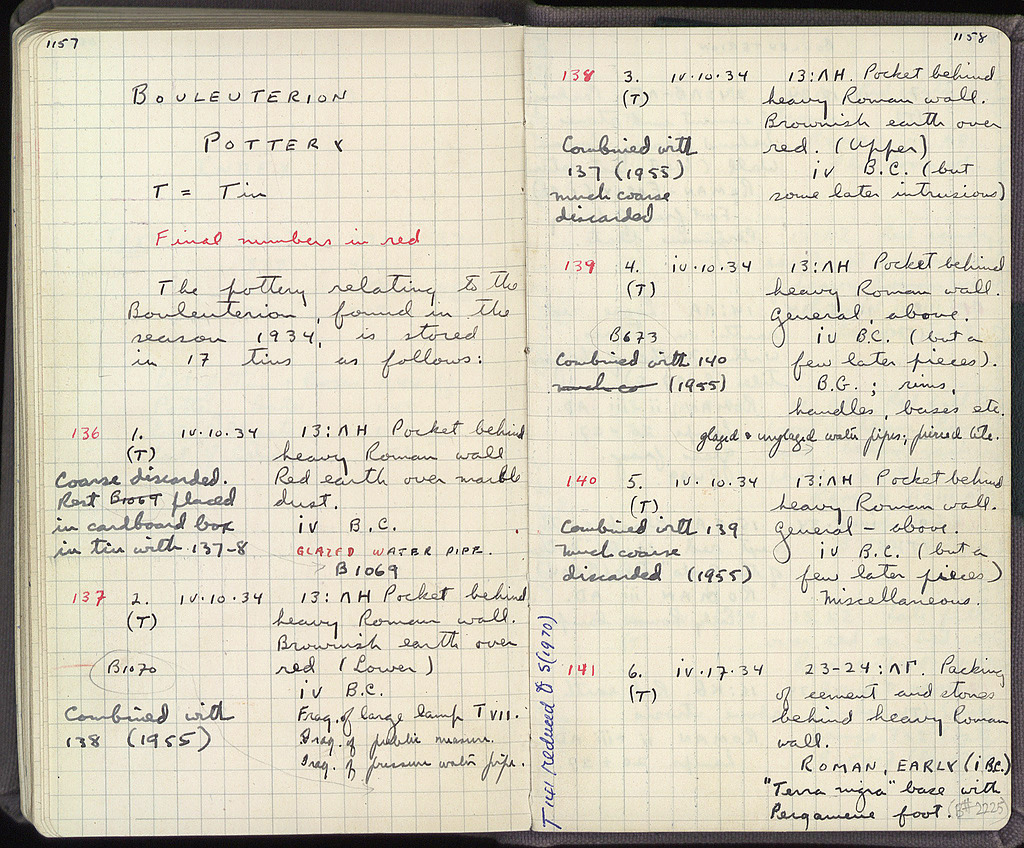 1157
BOULEUTERION
POTTERY
T = Tin
Final numbers in red
The pottery relating to the
Bouleuterion, found in the
season 1934, is stored
in 17 tins as follows:
136 1. IV·10·34 13:ΛH Pocket behind
(T) heavy Roman wall
Coarse discarded. Red earth over marble
Rest B1069 placed dust.
in cardboard box iv B.C.
in tin with 137-8 GLAZED WATER PIPE.
B1069
137 2. IV·10·34 13:ΛH Pocket behind
(T) heavy Roman wall.
Brownish earth over
B1070 red (Lower)
iv B.C.
Combined with Frag. of large lamp T VII.
138 (1955) Frag. of public measure.
Frag. of pressure water pipe.
1158
138 3. IV·10·34 13:ΛH. Pocket behind
(T) heavy Roman wall.
Brownish earth over
Combined with red. (Upper)
137 (1955) iv B.C. (but
much coarse some later intrusions)
discarded
139 4. IV·10·34 13:ΛH Pocket behind
(T) heavy Roman wall.
General, above.
B673 iv B.C. (but a
Combined with 140 few later pieces).
much co (1955) B.G.; rims,
handles, bases etc.
glazed & unglazed water pipes; pierced tile.
140 5. IV·10·34 13:ΛH Pocket behind
(T) heavy Roman wall.
Combined with 139 General – above.
much coarse iv B.C. (but a
discarded (1955) few later pieces)
Miscellaneous.
T 141 reduced to 5 (1970)
141 6. IV·17·34 23-24:ΛΓ. Packing
(T) of cement and stones
behind heavy Roman
wall.
ROMAN, EARLY (i B.C.)
"Terra nigra" base with
Pergamene foot. (B# 2225)